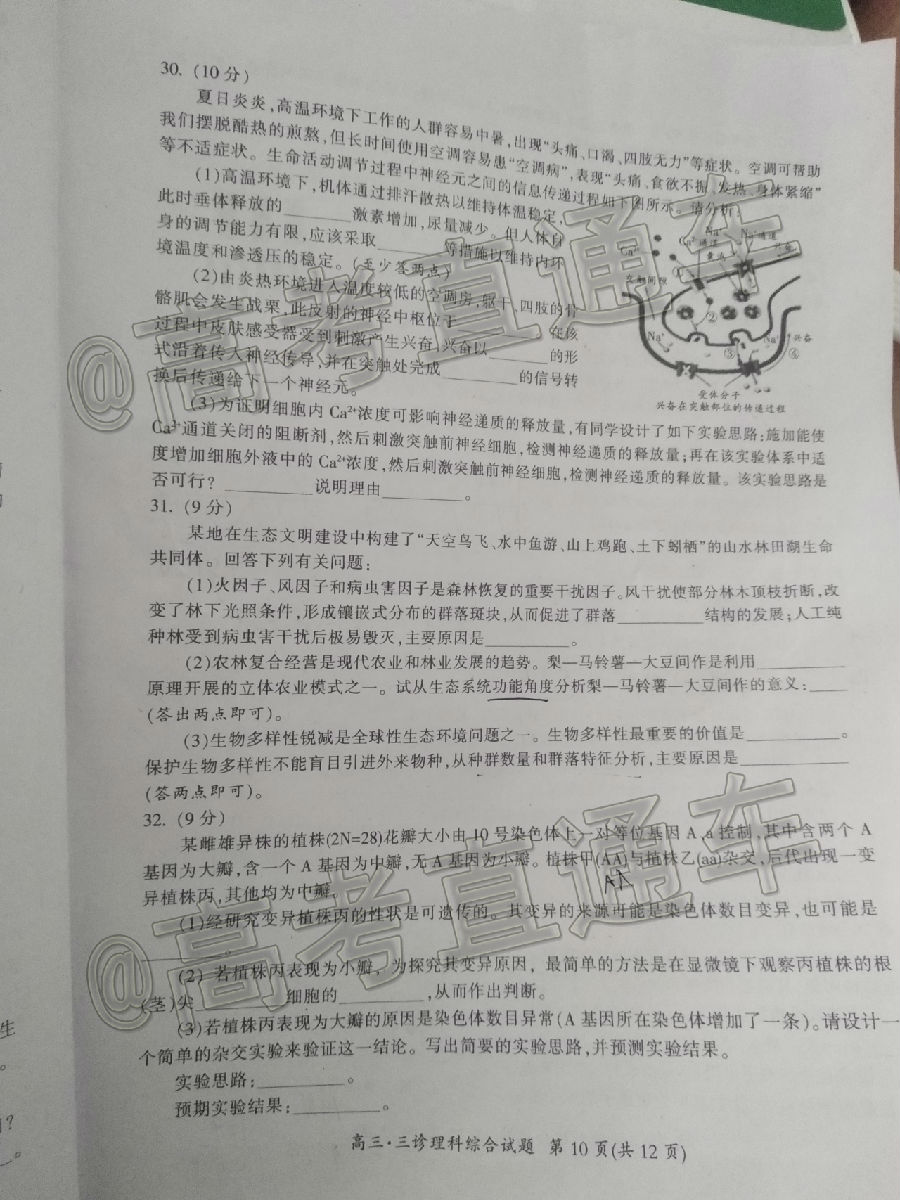 30. (10分)
夏日炎炎,高温环境下工作的人群容易中暑,出现“头痛、口渴、四肢无力”等症状。空调可帮助
我们摆脱酷热的煎熬,但长时间使用空调容易患“空调病”,表现“头痛、食欲不振、发热、身体紧缩”
等不适症状。生命活动调节过程中神经元之间的信息传递过程如下图所示。请分析:
(1)高温环境下,机体通过排汗散热以维持体温稳定,
此时垂体释放的________激素增加,尿量减少。但人体自
身的调节能力有限,应该采取________等措施以维持内环
境温度和渗透压的稳定。(至少答两点)
(2)由炎热环境进入温度较低的空调房,躯干、四肢的骨
骼肌会发生战栗,此反射的神经中枢位于________。在该
过程中皮肤感受器受到刺激产生兴奋,兴奋以________的形
式沿着传入神经传导,并在突触处完成________的信号转
换后传递给下一个神经元。
Ca²⁺
Na⁺
Ca²⁺通道
Na⁺通道
兴奋
突触间隙
①
②
③
④
Na⁺
兴奋
受体分子
兴奋在突触部位的传递过程
(3)为证明细胞内Ca²⁺浓度可影响神经递质的释放量,有同学设计了如下实验思路:施加能使
Ca²⁺通道关闭的阻断剂,然后刺激突触前神经细胞,检测神经递质的释放量;再在该实验体系中适
度增加细胞外液中的Ca²⁺浓度,然后刺激突触前神经细胞,检测神经递质的释放量。该实验思路是
否可行?________说明理由________。
31. (9分)
某地在生态文明建设中构建了“天空鸟飞、水中鱼游、山上鸡跑、土下蚓栖”的山水林田湖生命
共同体。回答下列有关问题:
(1)火因子、风因子和病虫害因子是森林恢复的重要干扰因子。风干扰使部分林木顶枝折断,改
变了林下光照条件,形成镶嵌式分布的群落斑块,从而促进了群落________结构的发展;人工纯
种林受到病虫害干扰后极易毁灭,主要原因是________。
(2)农林复合经营是现代农业和林业发展的趋势。梨—马铃薯—大豆间作是利用________
原理开展的立体农业模式之一。试从生态系统功能角度分析梨—马铃薯—大豆间作的意义:____
(答出两点即可)。
(3)生物多样性锐减是全球性生态环境问题之一。生物多样性最重要的价值是________。
保护生物多样性不能盲目引进外来物种,从种群数量和群落特征分析,主要原因是________
(答两点即可)。
32. (9分)
某雌雄异株的植株(2N=28)花瓣大小由10号染色体上一对等位基因A、a控制,其中含两个A
基因为大瓣,含一个A基因为中瓣,无A基因为小瓣。植株甲(AA)与植株乙(aa)杂交,后代出现一变
AA
异植株丙,其他均为中瓣。
(1)经研究变异植株丙的性状是可遗传的。其变异的来源可能是染色体数目变异,也可能是
________。
(2)若植株丙表现为小瓣,为探究其变异原因,最简单的方法是在显微镜下观察丙植株的根
(茎)尖________细胞的________,从而作出判断。
(3)若植株丙表现为大瓣的原因是染色体数目异常(A基因所在染色体增加了一条)。请设计一
个简单的杂交实验来验证这一结论。写出简要的实验思路,并预测实验结果。
实验思路:________。
预期实验结果:________.
高三·三诊理科综合试题 第10页(共12页)
@高考直通车
@高考直通车